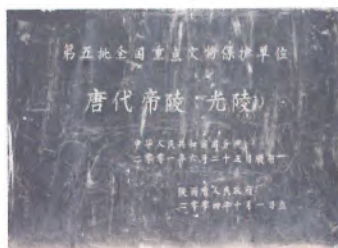 第五批全国重点文物保护单位
唐代帝陵·光陵
中华人民共和国国务院
二零零一年六月二十五日
陕西省人民政府
二零零四年十月一日立